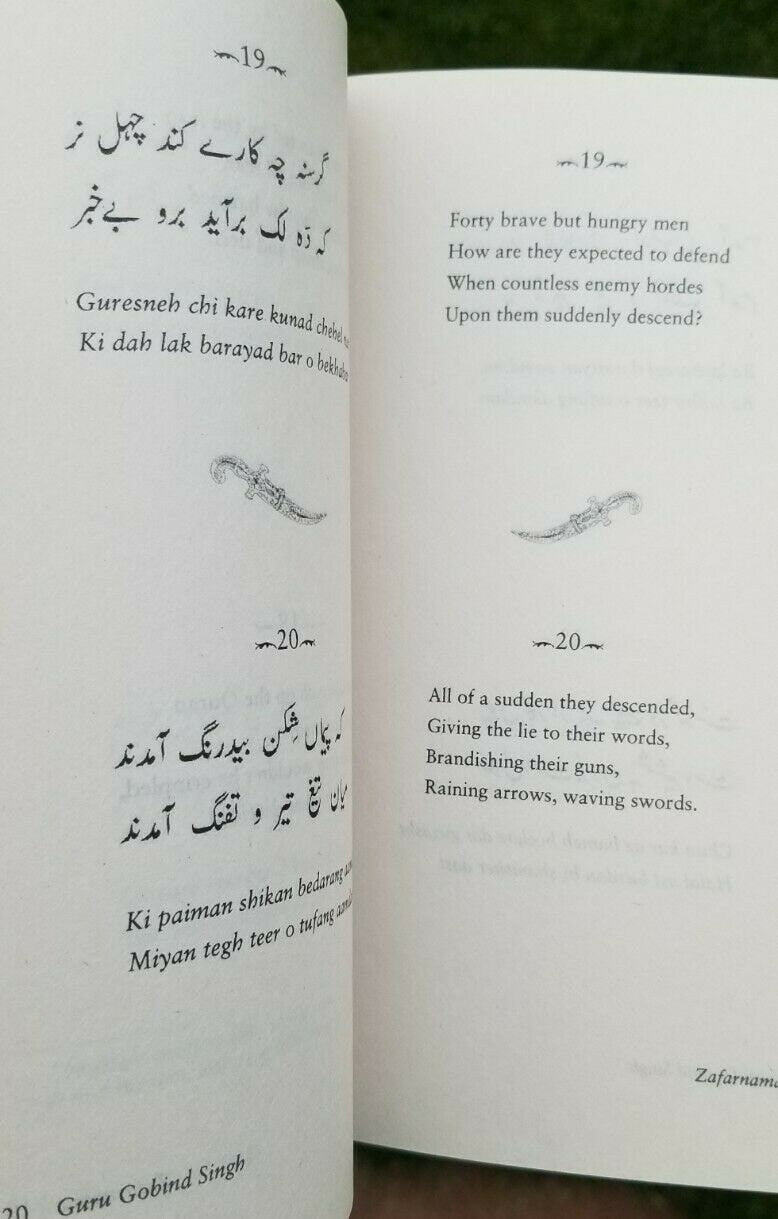 19
گرسنہ چہ کارے کند چہل نر
کہ دَہ لک برآید برو بےخبر
Guresneh chi kare kunad chehel
Ki dah lak barayad bar o
20
کہ پیماں شِکن بیدرنگ آمدند
میان تیغ تیر و تفنگ آمدند
Ki paiman shikan bedarang
Miyan tegh teer o tufang
20 Guru Gobind Singh
19
Forty brave but hungry men
How are they expected to defend
When countless enemy hordes
Upon them suddenly descend?
20
All of a sudden they descended,
Giving the lie to their words,
Brandishing their guns,
Raining arrows, waving swords.
Zafarnama